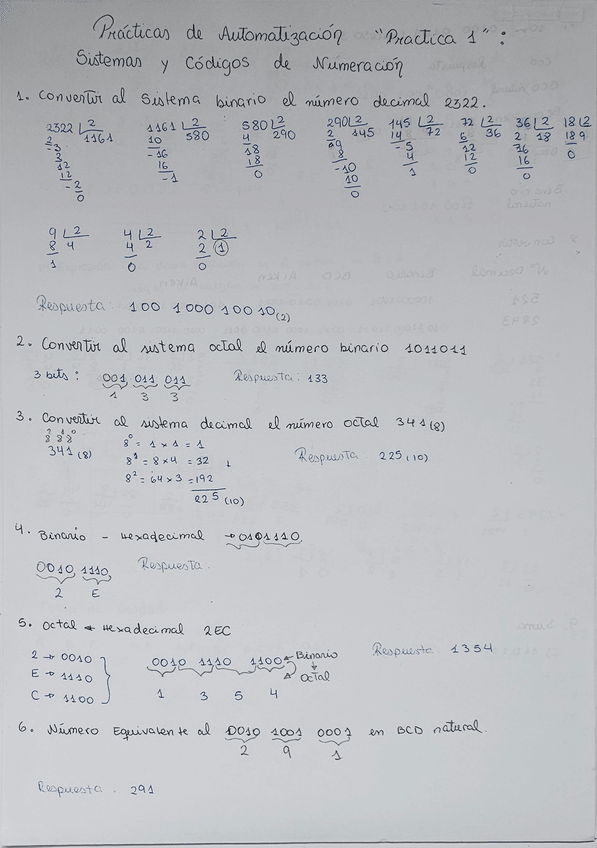 Prácticas de Automatización "Practica 1":
Sistemas y Códigos de Numeración
1. Convertir al sistema binario el número decimal 2322.
2322 |2 1161 |2 580 |2 290 |2 145 |2 72 |2 36 |2 18 |2
1161 580 290 145 72 36 18 9
9 |2 4 |2 2 |2
8 4 4 2 2 1
1 0 0
Respuesta 100 1000 100 10 (2)
2. Convertir al sistema octal el número binario 1011011
3 bits: 001 011 011 Respuesta: 133
1 3 3
3. Convertir al sistema decimal el número octal 341 (8)
8² 8¹ 8⁰ 8⁰ = 1 x 1 = 1
341 (8) 8¹ = 8 x 4 = 32 Respuesta 225 (10)
8² = 64 x 3 = 192
225 (10)
4. Binario - Hexadecimal → 0101110
0010 1110 Respuesta.
2 E
5. Octal ← Hexadecimal 2EC
2 → 0010 0010 1110 1100 ← Binario Respuesta 1354
E → 1110 Octal
C → 1100 1 3 5 4
6. Número Equivalente al 0010 1001 0001 en BCD natural.
2 9 1
Respuesta. 291